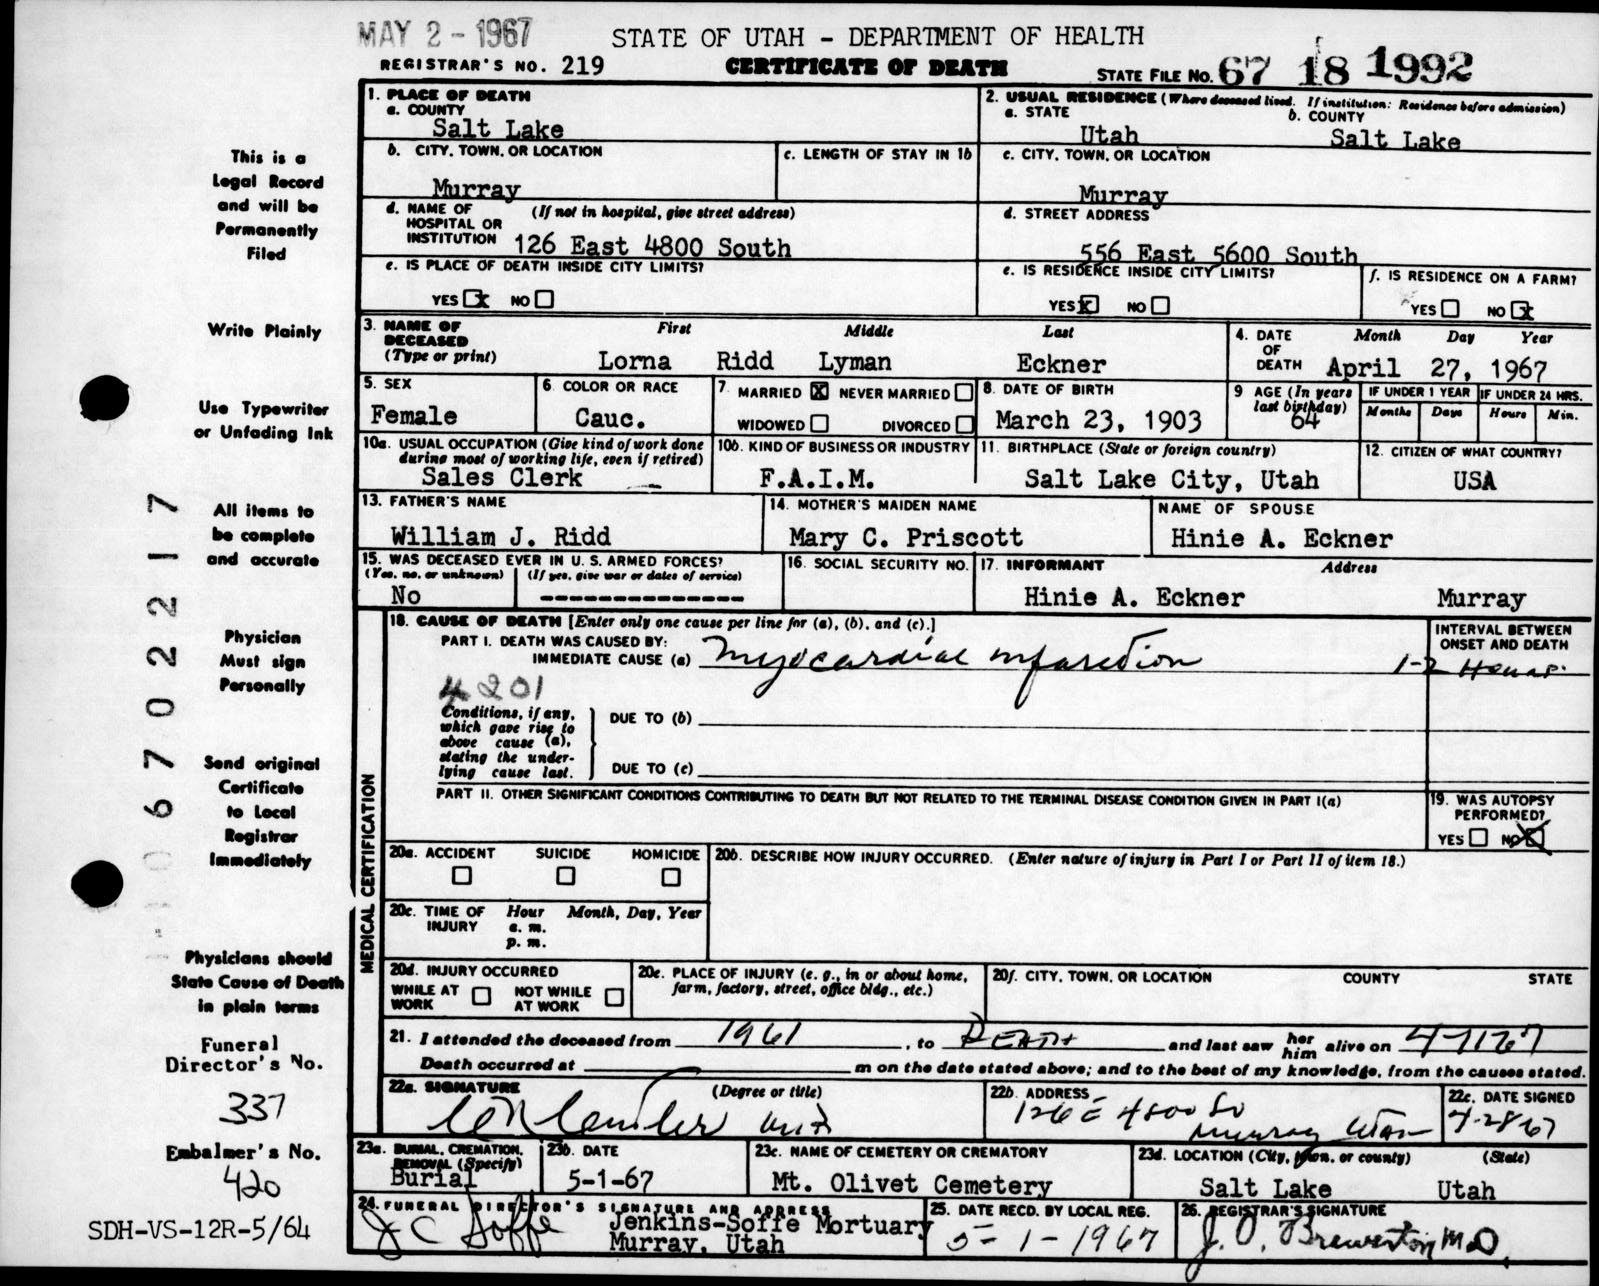 MAY 2 - 1967
STATE OF UTAH - DEPARTMENT OF HEALTH
REGISTRAR'S NO. 219
CERTIFICATE OF DEATH
STATE FILE NO. 67 18 1992
This is a
Legal Record
and will be
Permanently
Filed
Write Plainly
Use Typewriter
or Unfading Ink
All items to
be complete
and accurate
Physician
Must sign
Personally
Send original
Certificate
to Local
Registrar
Immediately
Physicians should
State Cause of Death
in plain terms
Funeral
Director's No.
337
Embalmer's No.
420
SDH-VS-12R-5/64
06702217
1. PLACE OF DEATH
a. COUNTY
Salt Lake
2. USUAL RESIDENCE (Where deceased lived. If institution: Residence before admission)
a. STATE
Utah
b. COUNTY
Salt Lake
b. CITY, TOWN, OR LOCATION
Murray
c. LENGTH OF STAY IN 1b
c. CITY, TOWN, OR LOCATION
Murray
d. NAME OF HOSPITAL OR INSTITUTION
(If not in hospital, give street address)
126 East 4800 South
d. STREET ADDRESS
556 East 5600 South
e. IS PLACE OF DEATH INSIDE CITY LIMITS?
YES x NO
e. IS RESIDENCE INSIDE CITY LIMITS?
YES X NO
f. IS RESIDENCE ON A FARM?
YES NO x
3. NAME OF DECEASED
(Type or print)
First Middle Last
Lorna Ridd Lyman Eckner
4. DATE OF DEATH
Month Day Year
April 27, 1967
5. SEX
Female
6. COLOR OR RACE
Cauc.
7. MARRIED X NEVER MARRIED
WIDOWED DIVORCED
8. DATE OF BIRTH
March 23, 1903
9 AGE (In years last birthday)
64
IF UNDER 1 YEAR
Months Days
IF UNDER 24 HRS.
Hours Min.
10a. USUAL OCCUPATION (Give kind of work done during most of working life, even if retired)
Sales Clerk
10b. KIND OF BUSINESS OR INDUSTRY
F.A.I.M.
11. BIRTHPLACE (State or foreign country)
Salt Lake City, Utah
12. CITIZEN OF WHAT COUNTRY?
USA
13. FATHER'S NAME
William J. Ridd
14. MOTHER'S MAIDEN NAME
Mary C. Priscott
NAME OF SPOUSE
Hinie A. Eckner
15. WAS DECEASED EVER IN U. S. ARMED FORCES?
(Yes, no, or unknown) (If yes, give war or dates of service)
No --------------
16. SOCIAL SECURITY NO.
17. INFORMANT Address
Hinie A. Eckner Murray
MEDICAL CERTIFICATION
18. CAUSE OF DEATH [Enter only one cause per line for (a), (b), and (c).]
PART I. DEATH WAS CAUSED BY:
IMMEDIATE CAUSE (a) Myocardial infarction
INTERVAL BETWEEN ONSET AND DEATH
1-2 Hours
4201
Conditions, if any, which gave rise to above cause (a), stating the underlying cause last.
DUE TO (b)
DUE TO (c)
PART II. OTHER SIGNIFICANT CONDITIONS CONTRIBUTING TO DEATH BUT NOT RELATED TO THE TERMINAL DISEASE CONDITION GIVEN IN PART I(a)
19. WAS AUTOPSY PERFORMED?
YES NO X
20a. ACCIDENT SUICIDE HOMICIDE
20b. DESCRIBE HOW INJURY OCCURRED. (Enter nature of injury in Part I or Part II of item 18.)
20c. TIME OF INJURY
Hour Month, Day, Year
a. m.
p. m.
20d. INJURY OCCURRED
WHILE AT WORK NOT WHILE AT WORK
20e. PLACE OF INJURY (e. g., in or about home, farm, factory, street, office bldg., etc.)
20f. CITY, TOWN, OR LOCATION COUNTY STATE
21. I attended the deceased from 1961, to Death and last saw her him alive on
Death occurred at m on the date stated above; and to the best of my knowledge, from the causes stated.
22a. SIGNATURE (Degree or title)
22b. ADDRESS
126 E 4800 So
Murray Utah
22c. DATE SIGNED
4-28-67
23a. BURIAL, CREMATION, REMOVAL (Specify)
Burial
23b. DATE
5-1-67
23c. NAME OF CEMETERY OR CREMATORY
Mt. Olivet Cemetery
23d. LOCATION (City, town, or county) (State)
Salt Lake Utah
24. FUNERAL DIRECTOR'S SIGNATURE AND ADDRESS
J C Soffe
Jenkins-Soffe Mortuary
Murray, Utah
25. DATE RECD. BY LOCAL REG.
5-1-1967
26. REGISTRAR'S SIGNATURE
J. O. Brewerton M.D.